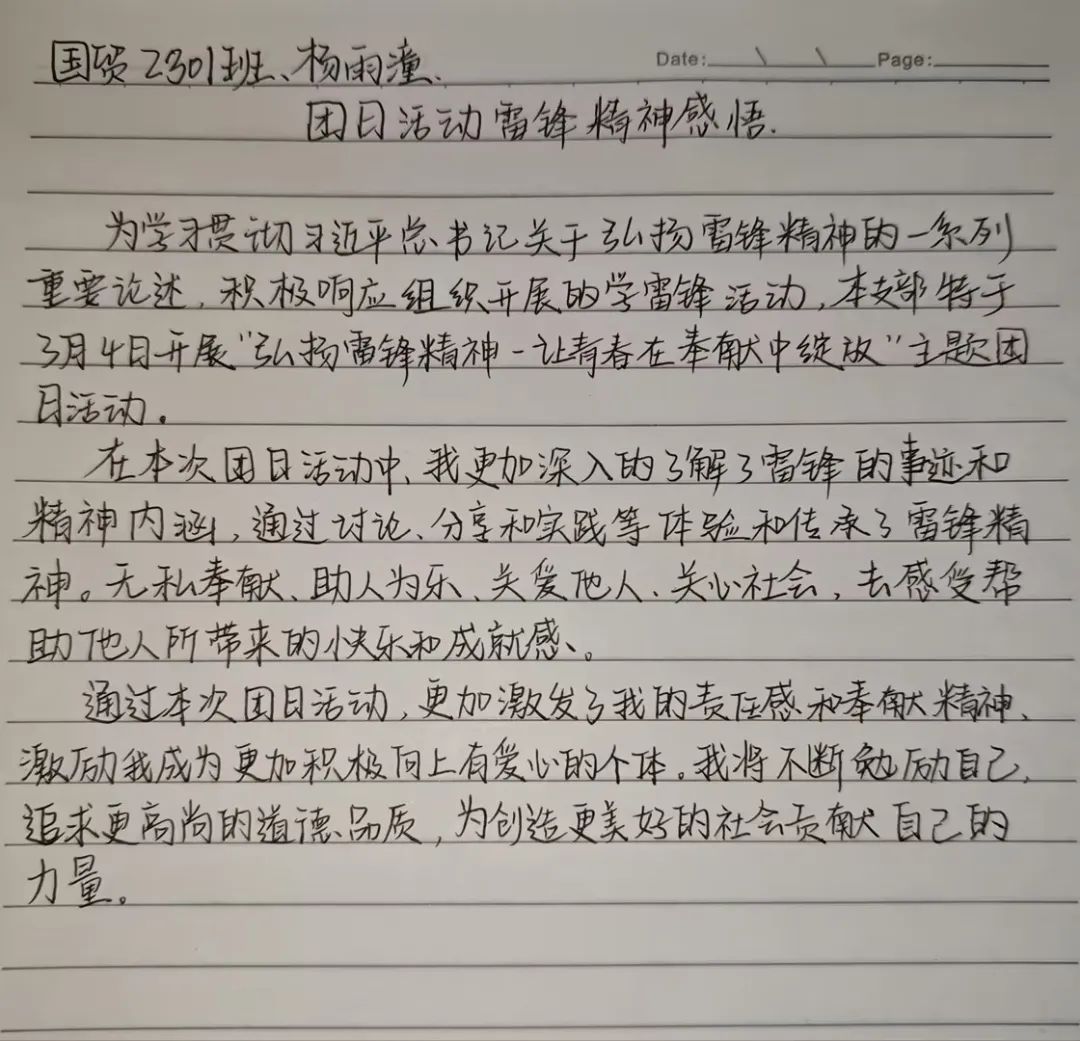 国贸2301班、杨雨潼.
Date: \ \ Page:
团日活动雷锋精神感悟.
为学习贯彻习近平总书记关于弘扬雷锋精神的一系列
重要论述,积极响应组织开展的学雷锋活动,本支部特于
3月4日开展“弘扬雷锋精神-让青春在奉献中绽放”主题团
日活动。
在本次团日活动中、我更加深入的了解了雷锋的事迹和
精神内涵,通过讨论、分享和实践等体验和传承了雷锋精
神。无私奉献、助人为乐、关爱他人、关心社会,去感受帮
助他人所带来的快乐和成就感、。
通过本次团日活动,更加激发了我的责任感和奉献精神、
激励我成为更加积极向上有爱心的个体。我将不断勉励自己,
追求更高尚的道德品质,为创造更美好的社会贡献自己的
力量。